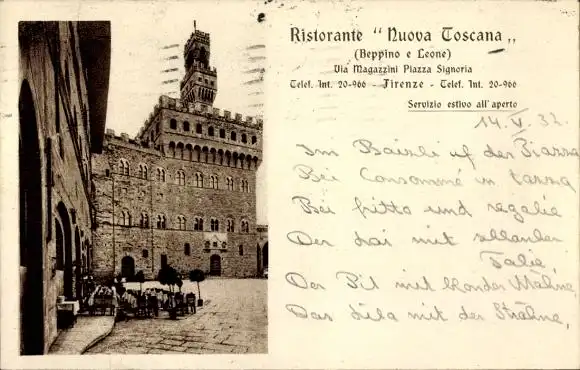 Ristorante "Nuova Toscana"
(Beppino e Leone)
Via Magazzini Piazza Signoria
Telef. Int. 20-966 - Firenze - Telef. Int. 20-966
Servizio estivo all'aperto
14. V. 32
Im Baisli uf der Piazza
Bei Consommé in tazza
Bei fritto und regalie
Der hai mit schlanker
Talie,
Der Pit mit blonder Mähne,
Das Lila mit der Strähne,